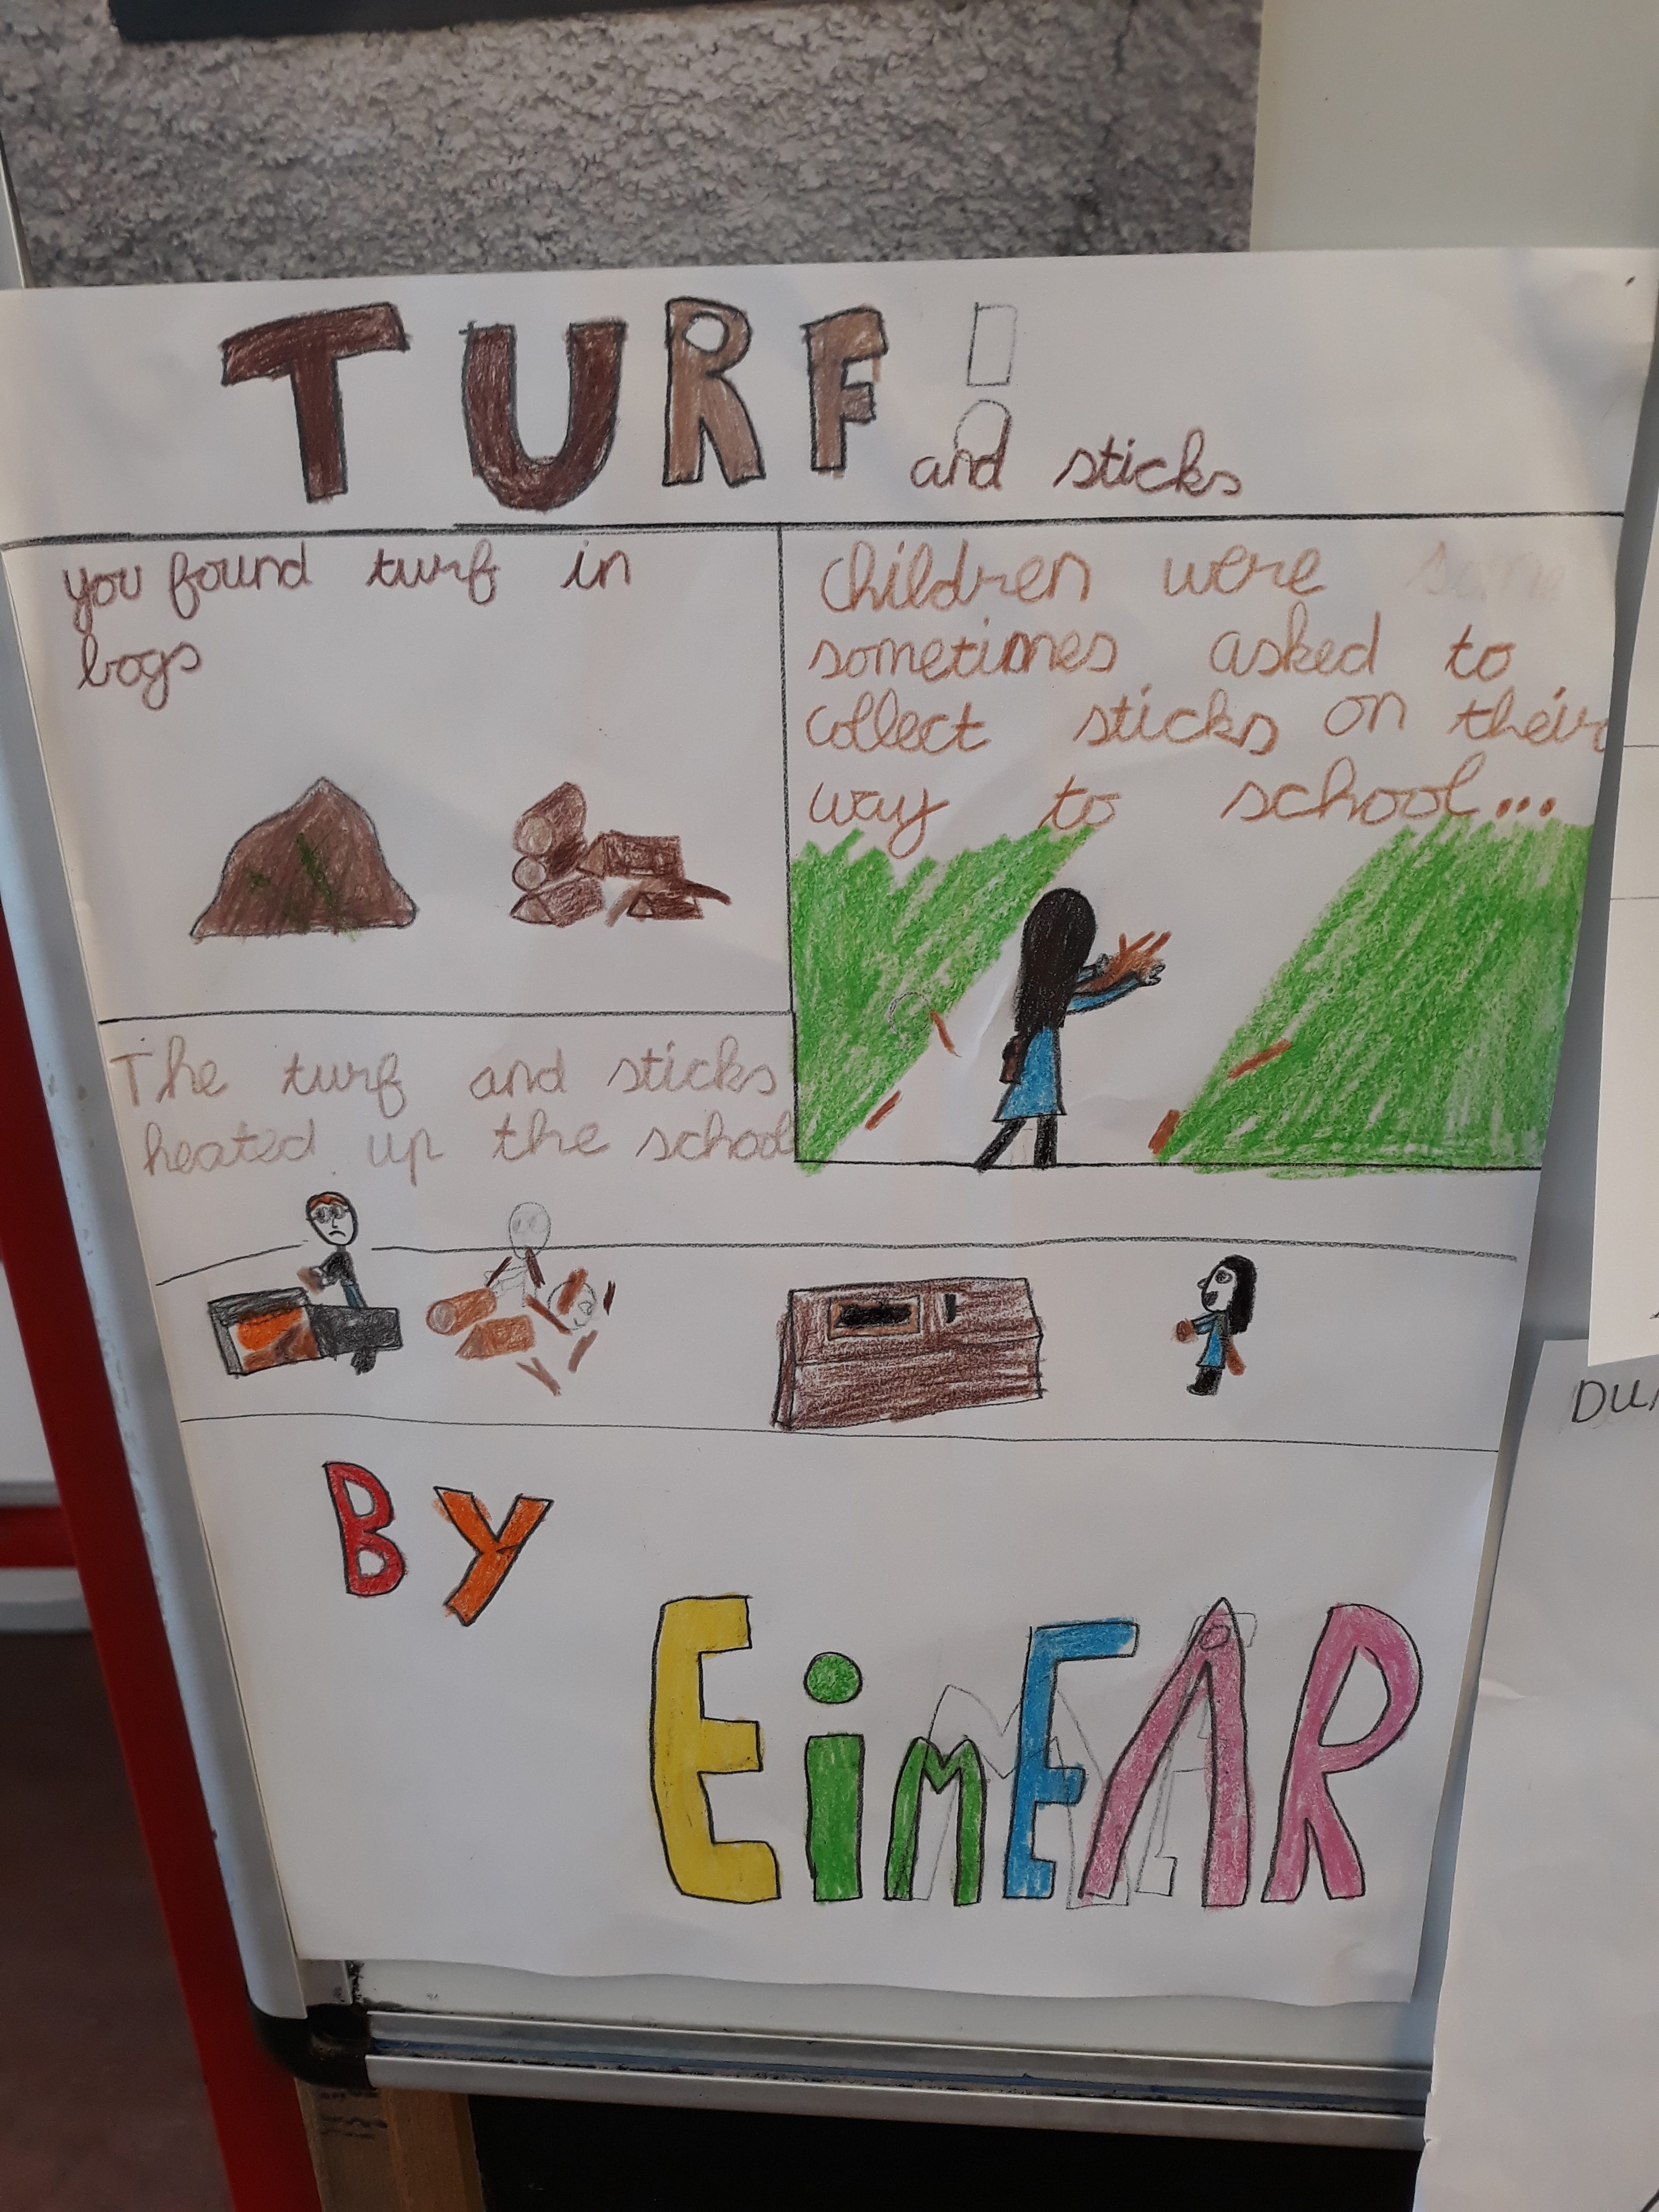 TURF and sticks
you found turf in
bogs
children were some
sometimes asked to
collect sticks on their
way to school...
The turf and sticks
heated up the school
By
EimEAR